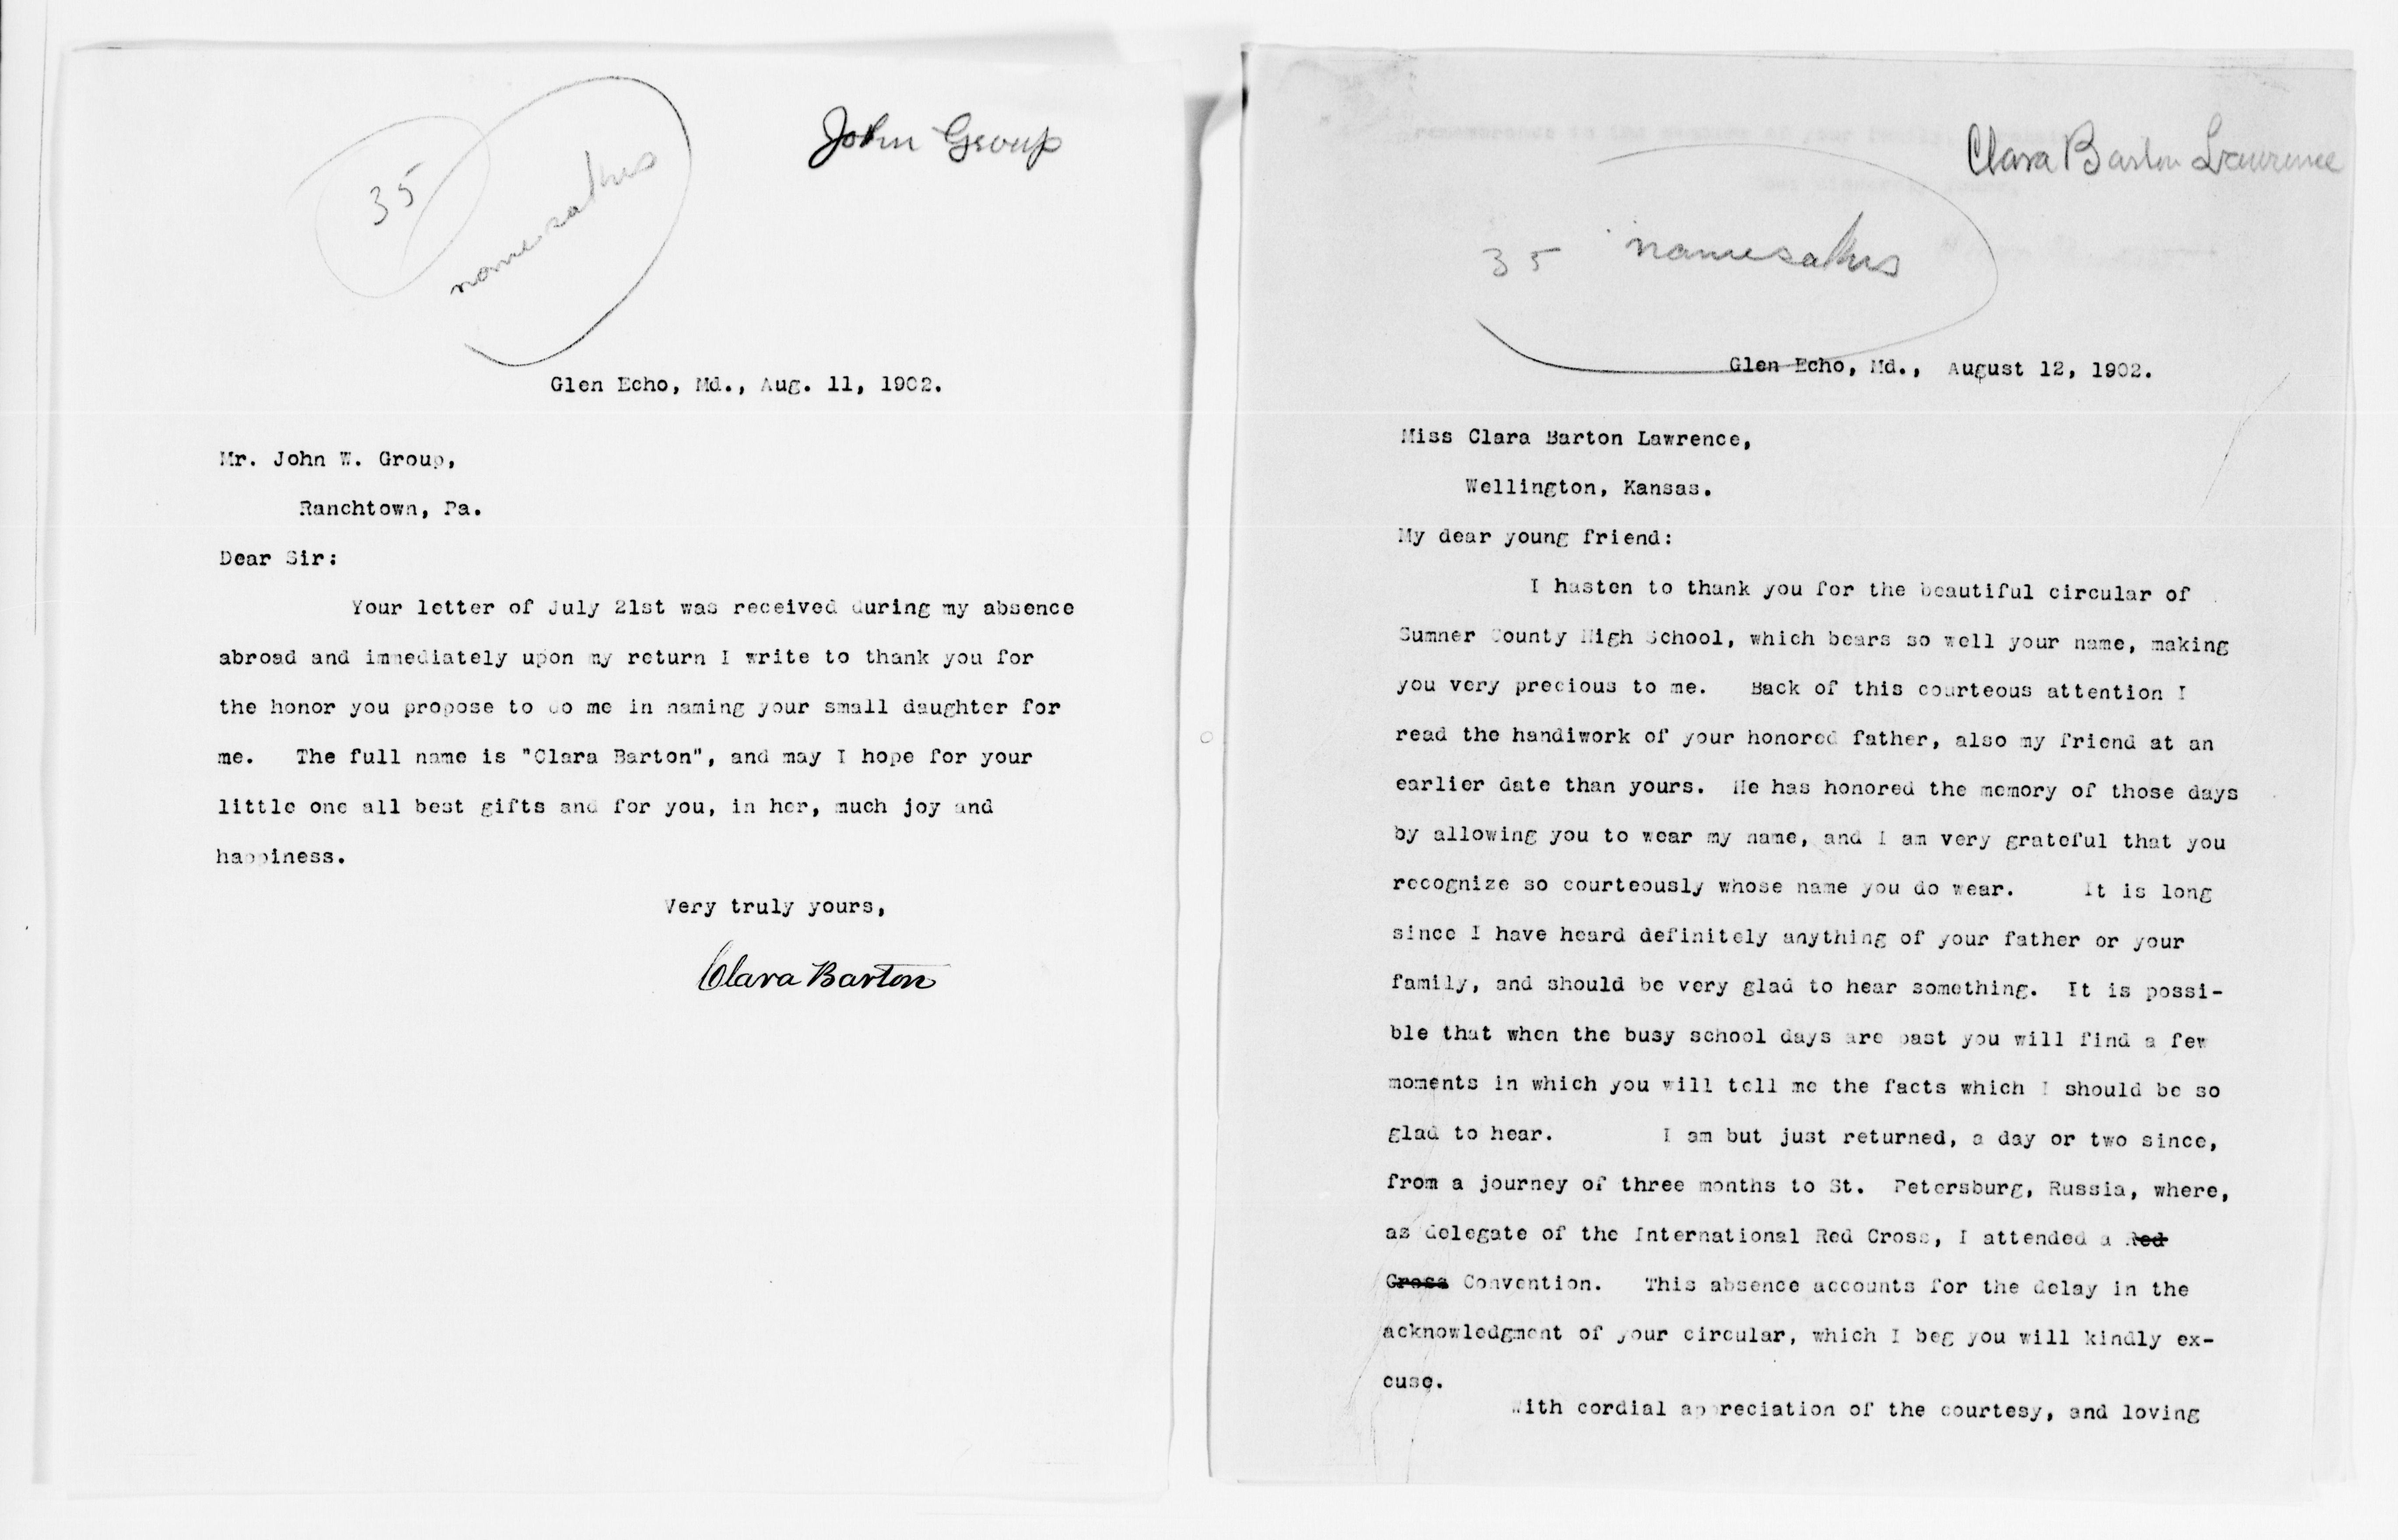 John Group
35
namesakes
Glen Echo, Md., Aug. 11, 1902.
Mr. John W. Group,
Ranchtown, Pa.
Dear Sir:
Your letter of July 21st was received during my absence
abroad and immediately upon my return I write to thank you for
the honor you propose to do me in naming your small daughter for
me. The full name is "Clara Barton", and may I hope for your
little one all best gifts and for you, in her, much joy and
happiness.
Very truly yours,
Clara Barton
Clara Barton Lawrence
35 namesakes
Glen Echo, Md., August 12, 1902.
Miss Clara Barton Lawrence,
Wellington, Kansas.
My dear young friend:
I hasten to thank you for the beautiful circular of
Sumner County High School, which bears so well your name, making
you very precious to me. Back of this courteous attention I
read the handiwork of your honored father, also my friend at an
earlier date than yours. He has honored the memory of those days
by allowing you to wear my name, and I am very grateful that you
recognize so courteously whose name you do wear. It is long
since I have heard definitely anything of your father or your
family, and should be very glad to hear something. It is possi-
ble that when the busy school days are past you will find a few
moments in which you will tell me the facts which I should be so
glad to hear. I am but just returned, a day or two since,
from a journey of three months to St. Petersburg, Russia, where,
as delegate of the International Red Cross, I attended a Red
Cross Convention. This absence accounts for the delay in the
acknowledgment of your circular, which I beg you will kindly ex-
cuse.
With cordial appreciation of the courtesy, and loving